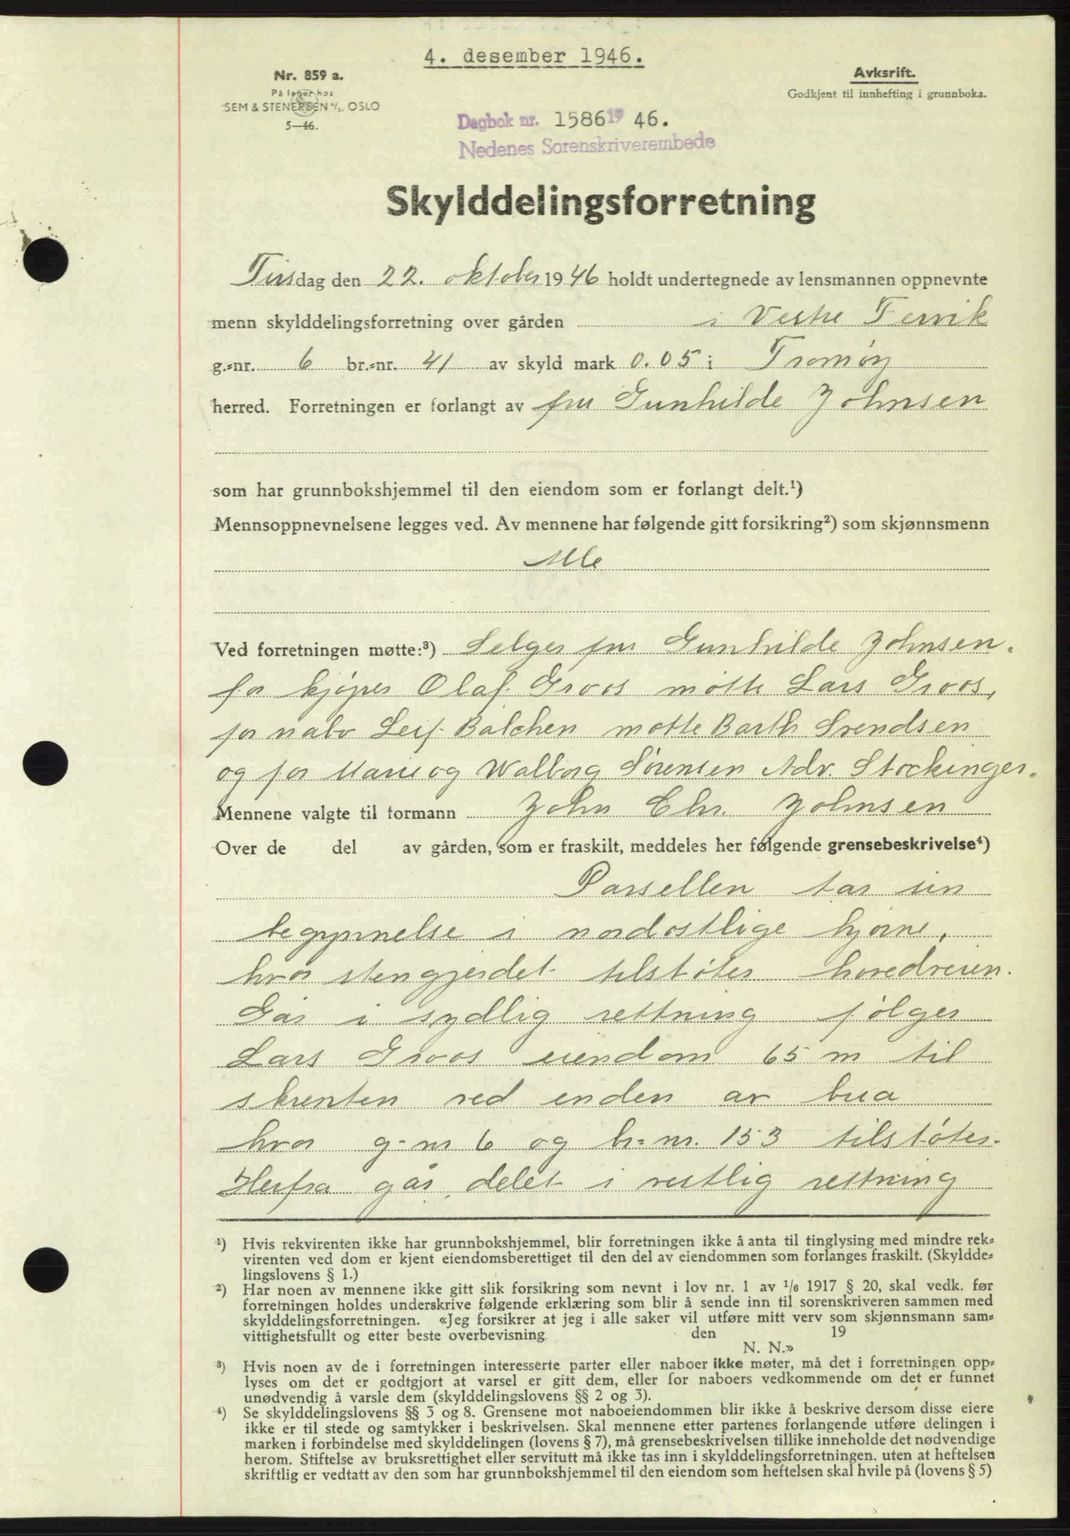 4. desember 1946.
Nr. 859 a.
På lager hos
SEM & STENERSEN A/S, OSLO
5—46.
Avskrift.
Godkjent til innhefting i grunnboka.
Dagbok nr. 1586 19 46.
Nedenes Sorenskriverembede
Skylddelingsforretning
Tirsdag den 22. oktober 1946 holdt undertegnede av lensmannen oppnevnte
menn skylddelingsforretning over gården i Vestre Tervik
g.=nr. 6 br.=nr. 41 av skyld mark 0.05 i Tromøy
herred. Forretningen er forlangt av fru Gunhilde Johnsen
som har grunnbokshjemmel til den eiendom som er forlangt delt.¹)
Mennsoppnevnelsene legges ved. Av mennene har følgende gitt forsikring²) som skjønnsmenn
Alle
Ved forretningen møtte:³) Selger fru Gunhilde Johnsen.
for kjøper Olaf Groos møtte Lars Groos,
for nabo Leif Balchen møtte Barth Svendsen
og for Marie og Walborg Sørensen Adv. Stockinger.
Mennene valgte til formann John Chr. Johnsen
Over de del av gården, som er fraskilt, meddeles her følgende grensebeskrivelse⁴)
Parsellen tar sin
begynnelse i nordostlige hjørne,
hvor stengjerdet tilstøter hovedveien.
Går i sydlig rettning følger
Lars Groos eiendom 65 m til
skrenten ved enden av bua
hvor g=nr 6 og b=nr. 153 tilstøter.
Herfra går delet i vestlig rettning
¹) Hvis rekvirenten ikke har grunnbokshjemmel, blir forretningen ikke å anta til tinglysing med mindre rek=
virenten ved dom er kjent eiendomsberettiget til den del av eiendommen som forlanges fraskilt. (Skyldde=
lingslovens § 1.)
²) Har noen av mennene ikke gitt slik forsikring som nevnt i lov nr. 1 av 1/6 1917 § 20, skal vedk. før
forretningen holdes underskrive følgende erklæring som blir å sende inn til sorenskriveren sammen med
skylddelingsforretningen. «Jeg forsikrer at jeg i alle saker vil utføre mitt verv som skjønnsmann sam=
vittighetsfullt og etter beste overbevisning den 19
N. N.»
³) Hvis noen av de i forretningen interesserte parter eller naboer ikke møter, må det i forretningen opp=
lyses om det er godtgjort at varsel er gitt dem, eller for naboers vedkommende om det er funnet
unødvendig å varsle dem (skylddelingslovens §§ 2 og 3).
⁴) Se skylddelingslovens §§ 3 og 8. Grensene mot naboeiendommen blir ikke å beskrive dersom disse eiere
ikke er til stede og samtykker i beskrivelsen. Skal mennene etter partenes forlangende utføre delingen i
marken i forbindelse med skylddelingen (lovens § 7), må grensebeskrivelsen tillike inneholde det nødvendige
herom. Stiftelse av bruksrettighet eller servitutt må ikke tas inn i skylddelingsforretningen. uten at heftelsen
skriftlig er vedtatt av den som har grunnbokshjemmel til den eiendom som heftelsen skal hvile på (lovens § 5)